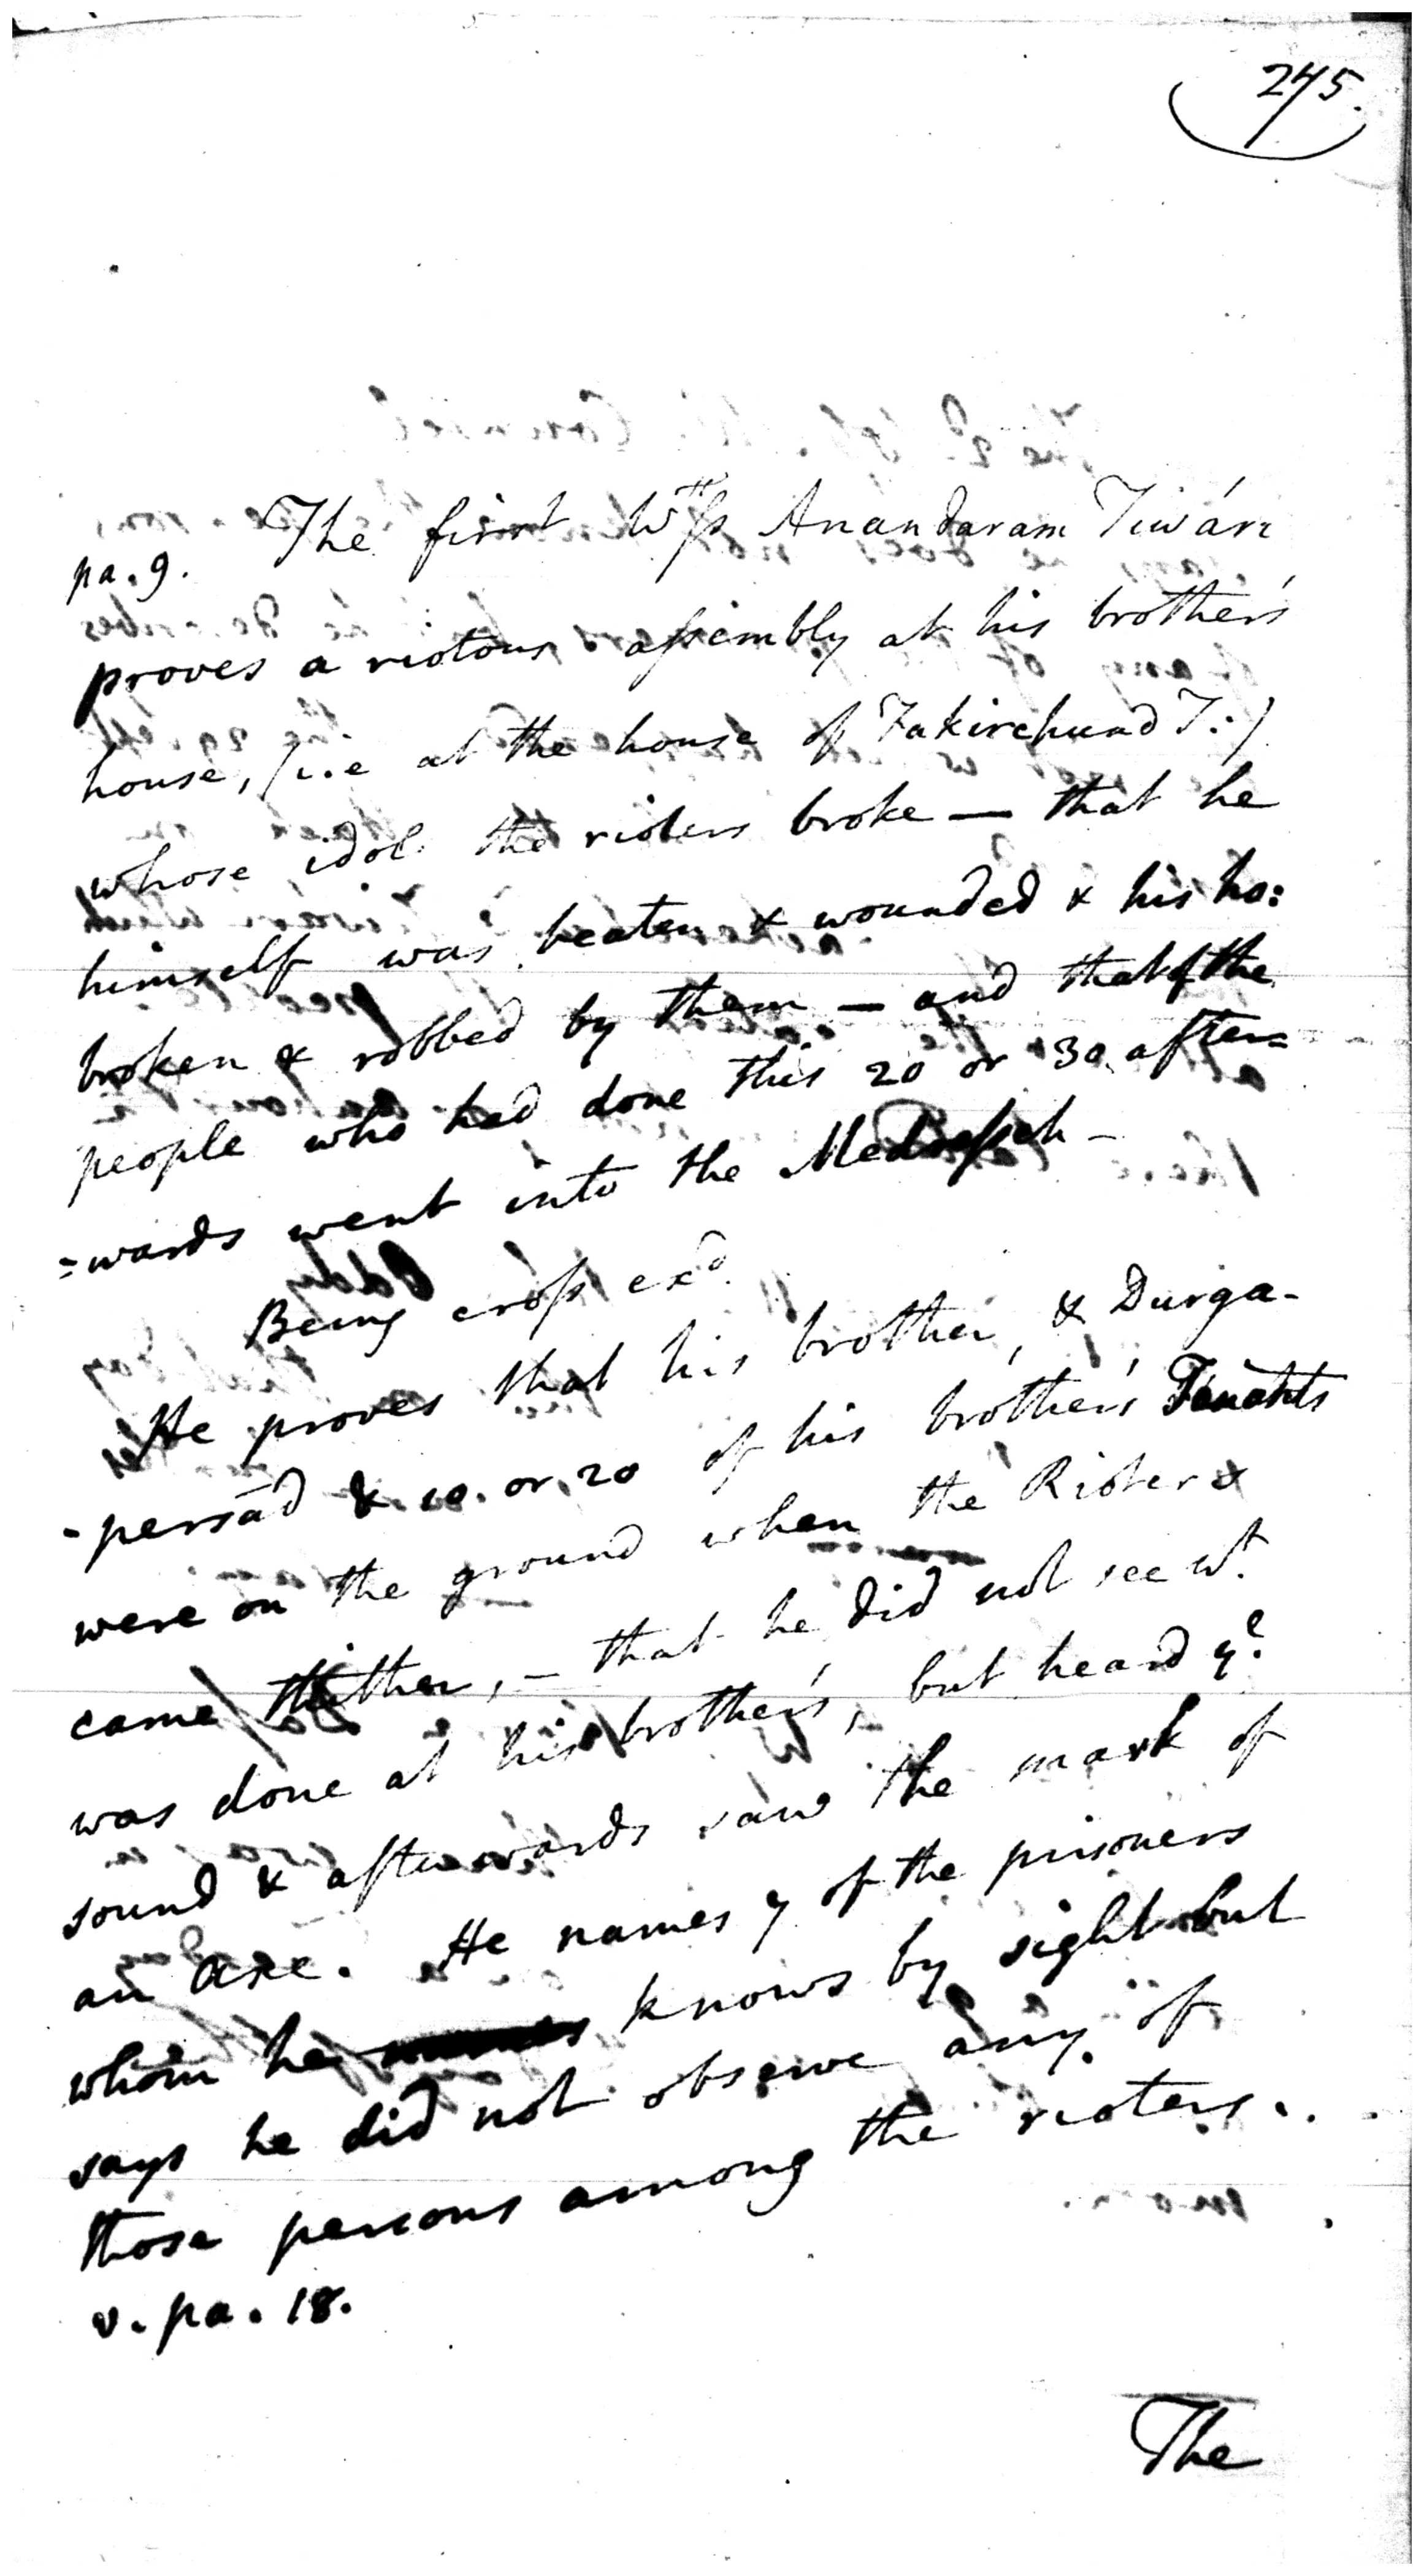 245.
The first Wittss Anandaram Tiwári
pa. 9.
proves a riotous assembly at his brother's
house, (i.e at the house of Fakirchund T:)
whose idol the rioters broke — that he
himself was beaten & wounded & his ho:
broken & robbed by them — and that of the
people who had done this 20 or 30 after=
=wards went into the Medresseh —
Being cross exd.
He proves that his brother, & Durga-
-persád & 10. or 20 of his brother's Tenants
were on the ground when the Rioters
came thither, — that he did not see wt.
was done at his brother's, but heard ye.
sound & afterwards saw the mark of
an axe. He names 7 of the prisoners
whom he knows by sight but
says he did not observe any of
those persons among the rioters.
v. pa. 18.
The